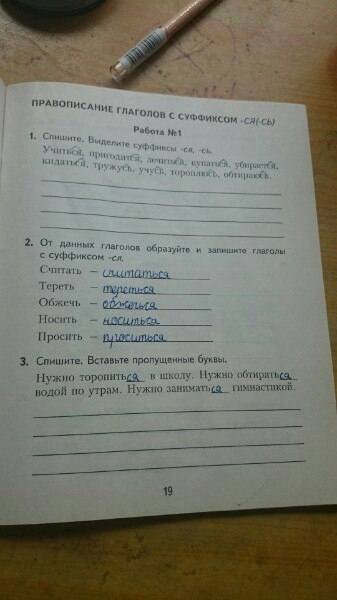 ПРАВОПИСАНИЕ ГЛАГОЛОВ С СУФФИКСОМ -СЯ(-СЬ)
Работа №1
1. Спишите. Выделите суффиксы -ся, -сь.
Учиться, пригодится, лечиться, купаться, убирается,
кидаться, тружусь, учусь, тороплюсь, обтираюсь.
2. От данных глаголов образуйте и запишите глаголы
с суффиксом -ся.
Считать – считаться
Тереть – тереться
Обжечь – обжечься
Носить – носиться
Просить – проситься
3. Спишите. Вставьте пропущенные буквы.
Нужно торопиться в школу. Нужно обтираться
водой по утрам. Нужно заниматься гимнастикой.
19